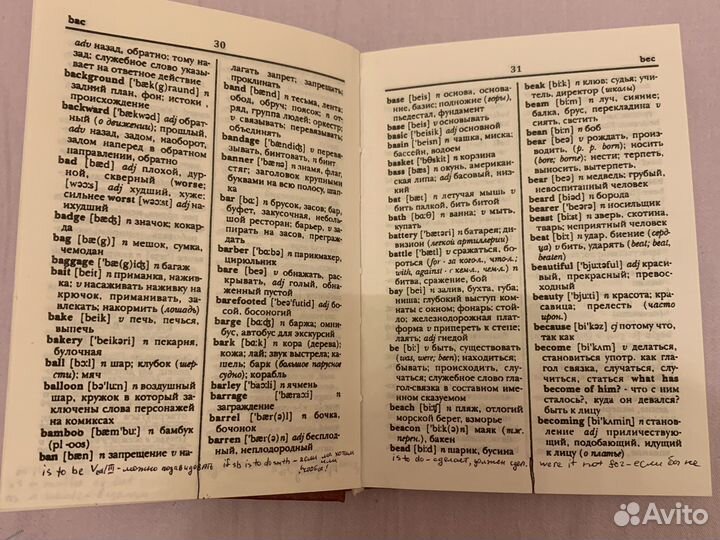 bac
30
adv назад, обратно; тому на-
зад; служебное слово указы-
вает на ответное действие
background ['bæk(g)raund] n
задний план, фон; истоки,
происхождение
backward ['bækwəd] adj обрат-
ный (о движении); прошлый,
adv назад, задом, наоборот,
задом наперед в обратном
направлении, обратно
bad [bæd] adj плохой, дур-
ной, скверный (worse;
[wə:s] adj худший, хуже;
сильнее worst [wə:st] adj на-
ихудший
badge [bæʤ] n значок; кокар-
да
bag [bæ(g)] n мешок, сумка,
чемодан
baggage ['bæ(g)iʤ] n багаж
bait [beit] n приманка, нажив-
ка; v насаживать наживку на
крючок, приманивать, за-
влекать; накормить (лошадь)
bake [beik] v печь, печься,
выпечь
bakery ['beikəri] n пекарня,
булочная
ball [bɔ:l] n шар; клубок (шер-
сти); мяч
balloon [bə'lu:n] n воздушный
шар, кружок в который за-
ключены слова персонажей
на комиксах
bamboo [bæm'bu:] n бамбук
(pl -oos)
ban [bæn] n запрещение v на-
лагать запрет; запрещать;
проклинать
band [bænd] n тесьма, лента;
обод, обруч; поясок; n от-
ряд, группа людей; оркестр;
v связывать, перевязывать;
объединять
bandage ['bændiʤ] v перевя-
зывать, бинтовать, n бинт
banner ['bænə] n знамя, флаг,
стяг; заголовок крупными
буквами на всю полосу, шап-
ка
bar [bɑ:] n брусок, засов; бар,
буфет, закусочная, неболь-
шой ресторан; барьер, v за-
пирать на засов, преграж-
дать
barber ['bɑ:bə] n парикмахер,
цирюльник
bare [beə] v обнажать, рас-
крывать, adj голый, обна-
женный пустой
barefooted ['beə'futid] adj бо-
сой, босоногий
barge [bɑ:ʤ] n баржа; омни-
бус, автобус для экскурсий
bark [bɑ:k] n кора (дерева);
кожа; лай; звук выстрела; ка-
шель; барк (большое парусное
судно); корабль
barley ['bɑ:li] n ячмень
barrage ['bærɑ:ʒ] n
заграждение
barrel ['bær(ə)l] n бочка,
бочонок
barren ['bær(ə)n] adj бесплод-
ный, неплодородный
is to be Ved/III - можно подвидовать
if sb is to do smth - если мы хотим
31
bec
base [beis] n основа, основа-
ние, базис; подножие (горы),
пьедестал, фундамент
base [beis] v основывать
basic ['beisik] adj основной
basin ['beisn] n чашка, миска;
бассейн, водоем
basket ['bɑ:skit] n корзина
bass [bæs] n окунь, американ-
ская липа; adj басовый, низ-
кий
bat [bæt] n летучая мышь v
бить палкой, бить битой
bath [bɑ:θ] n ванна; v мыть,
купать
battery ['bætəri] n батарея; ди-
визион (легкой артиллерии)
battle ['bætl] v сражаться, бо-
роться (for - за кого-л., что-л.;
with, against - с кем-л., чем-л.) n
битва, сражение, бой
bay [bei] n залив, бухта, губа;
ниша; глубокий выступ комна-
ты с окном; фонарь; стой-
ло; железнодорожная платформа
v припереть к стене;
лаять; adj гнедой
be [bi:] v быть, существовать
(was, were; been); находиться;
бывать; происходить, слу-
чаться; служебное слово гла-
гол-связка в составном имен-
ном сказуемом
beach [bi:ʧ] n пляж, отлогий
морской берег, взморье
beacon ['bi:k(ə)n] маяк (тж.
перен.), бакен
bead [bi:d] n шарик, бусина
beak [bi:k] n клюв; судья; учи-
тель, директор (школы)
beam [bi:m] n луч, сияние;
балка, брус, перекладина v
сиять, светить
bean [bi:n] n боб
bear [beə] v рождать, произ-
водить, (p. p. born); носить
(bore; borne); нести; терпеть,
выносить, вытерпеть
bear [beə] n медведь; грубый,
невоспитанный человек
beard [biəd] n борода
bearer ['beərə] n носильщик
beast [bi:st] n зверь, скотина,
тварь; неприятный человек
beat [bi:t] n удар, биение (серд-
ца) v бить, ударять (beat; beat,
beaten)
beautiful ['bju:təful] adj краси-
вый, прекрасный; превос-
ходный
beauty ['bju:ti] n красота; кра-
савица; прелесть (часто
ирон.)
because [bi'kəz] cj потому что,
так как
become [bi'kʌm] v делаться,
становиться употр. как гла-
гол связка, случатся, слу-
читься, статься what has
become of him? - что с ним
сталось?, куда он девался?
быть к лицу
becoming [bi'kʌmiŋ] n станов-
ление adj приличествую-
щий, подобающий, идущий
к лицу (о платье)
is to do - сделает, должен сдел.
were it not for - если бы не
Avito